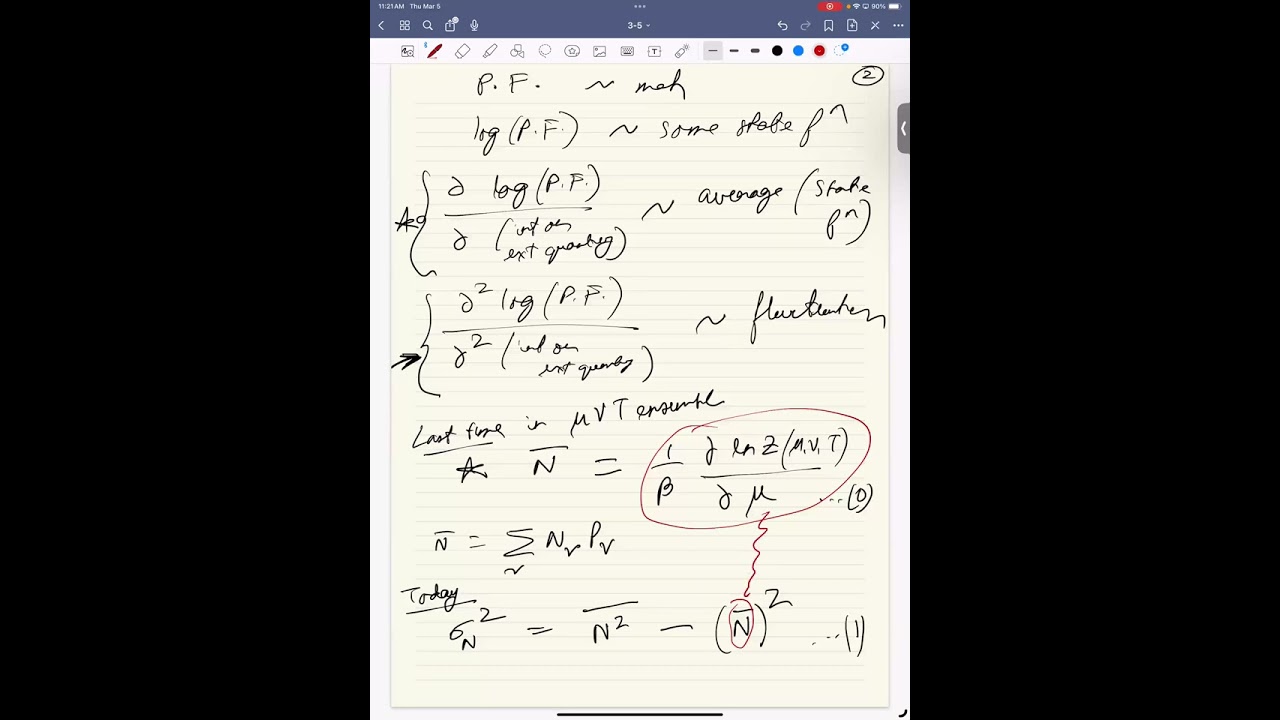 11:21 AM Thu Mar 5
90%
3-5
2
P.F. ~ meh
log(P.F.) ~ some state fⁿ
∂ log(P.F.) / ∂ (int or ext quantity) ~ average (state fⁿ)
∂² log(P.F.) / ∂² (int or ext quantity) ~ fluctuation
Last time in μVT ensemble
N̄ = 1/β ∂ ln Z(μ,V,T) / ∂ μ ...(0)
N̄ = Σ_ν N_ν P_ν
Today
σ_N² = \overline{N²} − (N̄)² ...(1)